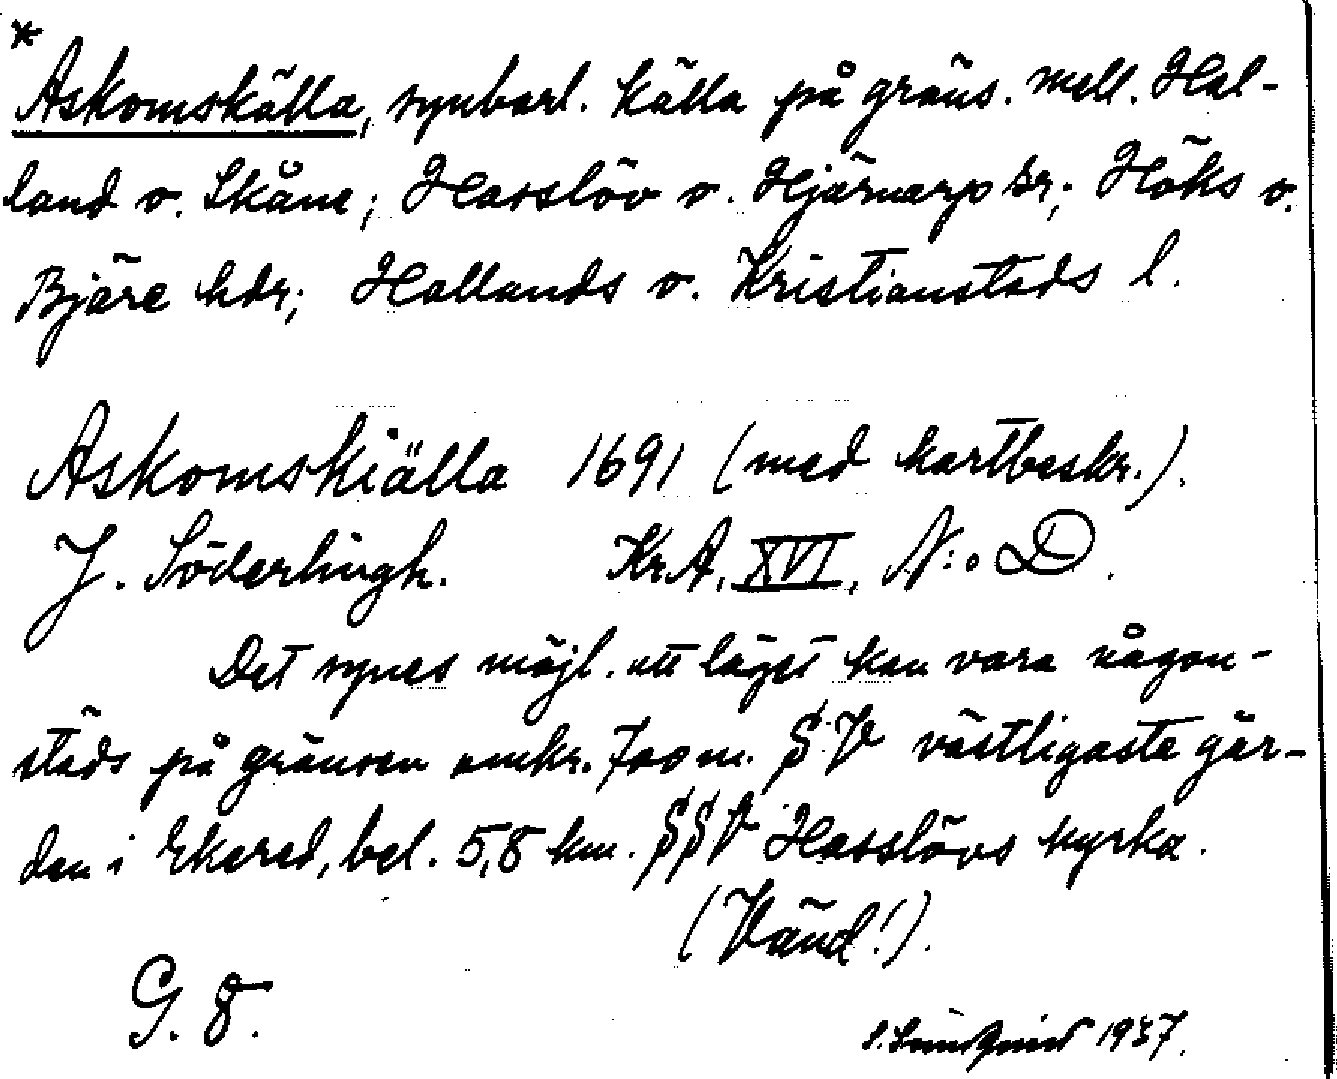 *
Askomskälla, synbarl. källa på gräns. mell. Hal-
land o. Skåne; Hasslöv o. Hjärnarp snr; Höks o.
Bjäre hdr; Hallands o. Kristianstads l.
Askomskiälla 1691 (med kartbeskr.).
J. Söderlingh. Kr.A. XVI, N:o D.
Det synes möjl. att läget kan vara någon-
städs på gränsen omkr. 700 m. SV västligaste går-
den i Ekered, bel. 5,8 km. SSV Hasslövs kyrka.
(Vänd!).
G. 8.
1937.